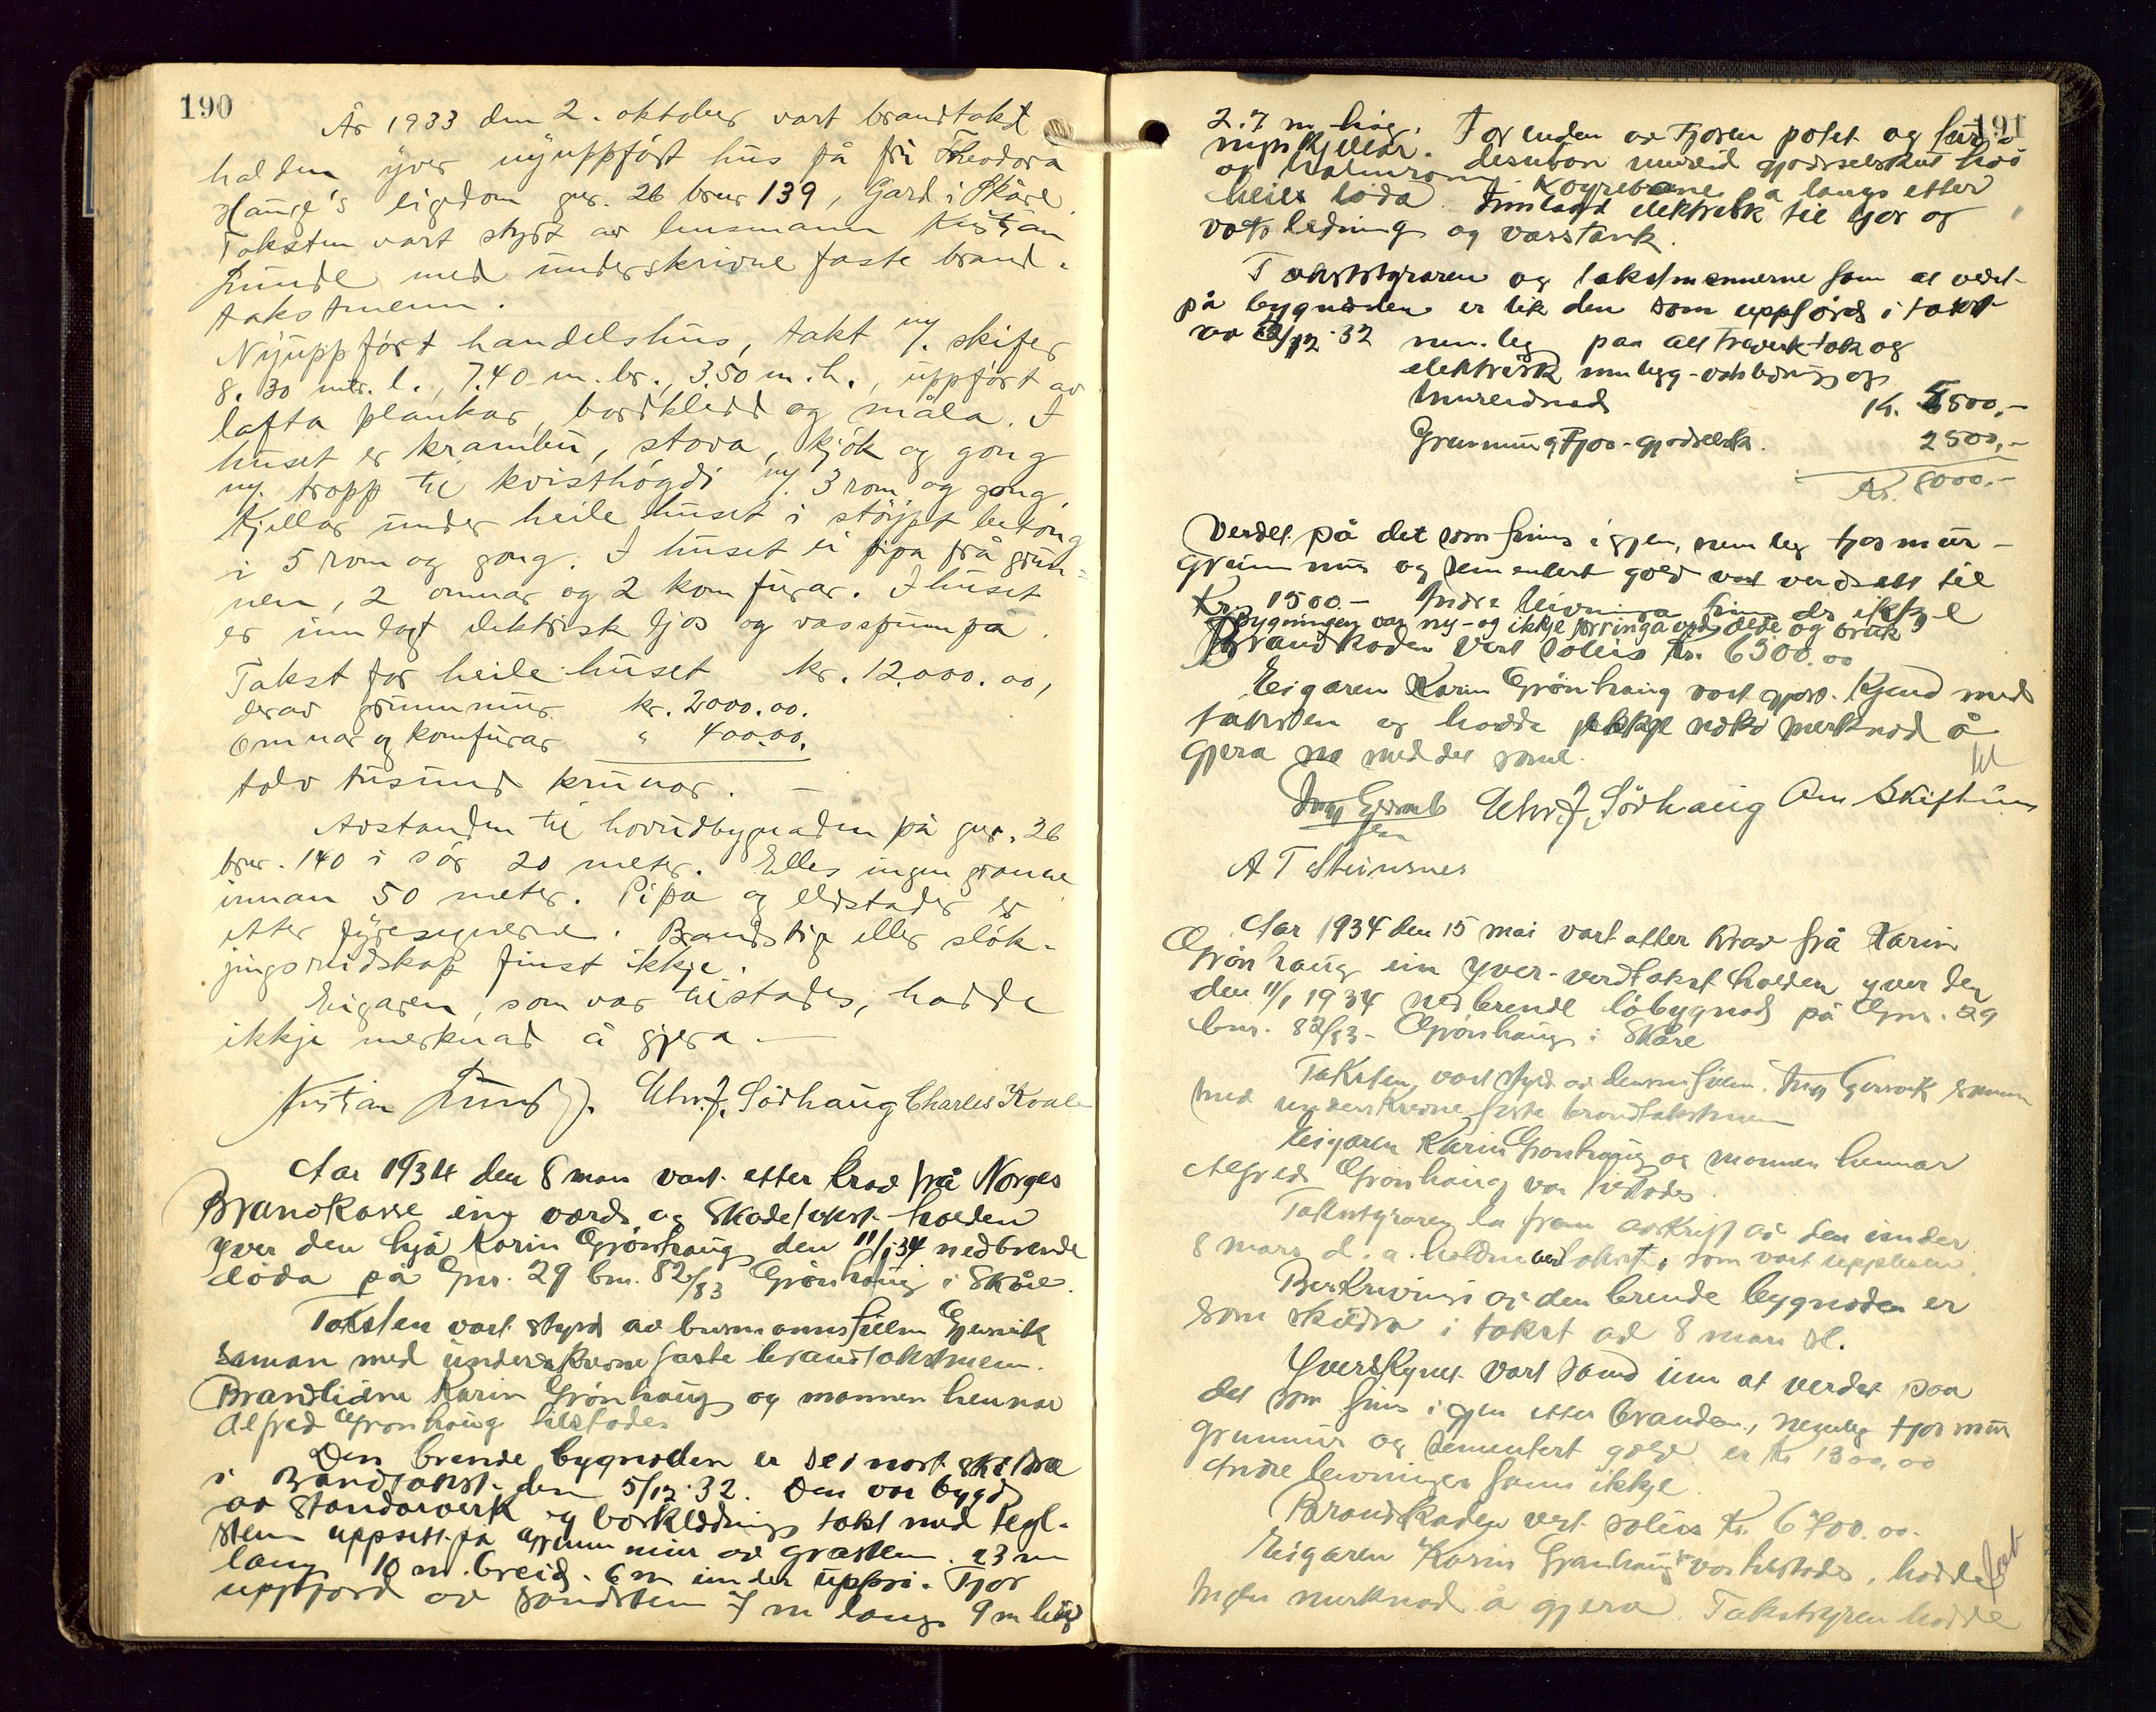 190
År 1933 den 2. oktober vart brandtakst
halden yver nyuppført hus på frå Theodora
Hauge's eigedom gnr. 26 bnr 139, Gard i Skåre.
Taksten vart styrt av lensmann Kristian
Lunde med underskrivne faste brand-
takstmenn.
Nyuppført handelshus, takt m/. skifer
8.30 mtr. l., 7.40 m. br., 3.50 m. h., uppført av
lafta plankar, bordkledd og måla. I
huset er krambu, stova, kjøk og gong
m/. tropp til kvisthøgdi m/. 3 rom og gong.
Kjellar under heile huset i støypt betong
i 5 rom og gong. I huset er pipa frå grun-
nen, 2 omnar og 2 komfurar. I huset
er innlagt elektrisk ljos og vasspumpa.
Takst for heile huset kr. 12.000.00,
derav grunnmur kr. 2000.00.
omnar og komfurar " 400.00.
tolv tusund krunor. —
Avstanden til hovudbygnaden på gnr. 26
bnr. 140 i sør 20 meter. Elles ingen granne
innan 50 meter. Pipa og eldstader er
etter fyresegnerne. Brandstige eller sløk-
jingsreidskap finst ikkje.
Eigaren, som var tilstades, hadde
ikkje merknad å gjera —
Kristian Lunde. Chr. J. Sørhaug Charles Kvale
Aar 1934 den 8 mars vart etter krav frå Norges
Brandkasse ein verds og Skadetakst holden
yver den hjå Karin Grønhaug den 11/1 34 nedbrende
løda på Gnr. 29 bnr. 82/83 Grønhaug i Skåre.
Taksten vart styrd av lensmannsfullm Gjersvik
saman med underskrevne faste brandtakstmenn.
Brandlidne Karin Grønhaug og mannen hennar
Alfred Grønhaug tilstades
Den brende bygnaden er
i Brandtakst den 5/12.32. Den var bygd
av Standarverk og bordkledning takt med tegl-
stein uppsett på grunnmur av graastein. 23 m
lang 10 m. breid. 6 m under uppsi. Fjos
uppførd av sandstein 7 m lang 9 m
191
2.7 m høg. For enden av Fjosen potet og
kjellar. desuton gjødselskut
og Køyrebane på langs etter
heile løda. Innlagt elektrisk til ljos og
vatsledning og vasstank.
Takststyraren og takstmennerne fann at verdet
på bygnaden er lik den som uppførdes i takst
av 5/12.32 nemleg paa alt treverk tak og
elektrisk innlegg - vatsledning og
Innreidnad Kr. 5500,-
Grunnmur Fjos - gjødselsk. 2500,-
Kr. 8000.-
Verdet på det som finns igjen, nemleg fjosmur -
grunnmur og sementert golv vart verdsett til
Kr. 1500 - Andre leivninga finns der ikkje
Bygningen var ny - og ikkje forringa ved elde og bruk
Brandskaden vert soleis Kr. 6500.00
Eigaren Karin Grønhaug vart gjord kjend med
taksten og hadde ikkje noko merknad å
gjera no med det same.
Chr. J. Sørhaug Om Skiftun
A T Steinsnes
Aar 1934 den 15 mai vart etter krav frå Karin
Grønhaug ein yver-verdtakst holden yver den
den 11/1 1934 nedbrende løbygnad på Gnr. 29
bnr. 82/83 - Grønhaug i Skåre
Taksten vart styrd av lensm.fullm. Gjersvik saman
med underskrevne faste brandtakstmenn
Eigaren Karin Grønhaug og mannen hennar
Alfred Grønhaug var tilstades.
Takststyraren la fram avskrift av den under
8 mars d. a. holdne takst, som vart upplesen.
Beskrivingi av den brende bygnaden er
som skildra i takst ad 8 mars dl.
Yverskynet vart samd um at verdet paa
det som finns igjen etter branden, nemleg fjosmur
grunnmur og sementert golv er Kr 1300.00
Andre leivninger fanns ikkje
Brandskaden vert soleis Kr. 6700.00.
Eigaren Karin Grønhaug var tilstades, hadde
ingen merknad å gjera. Takststyren hadde